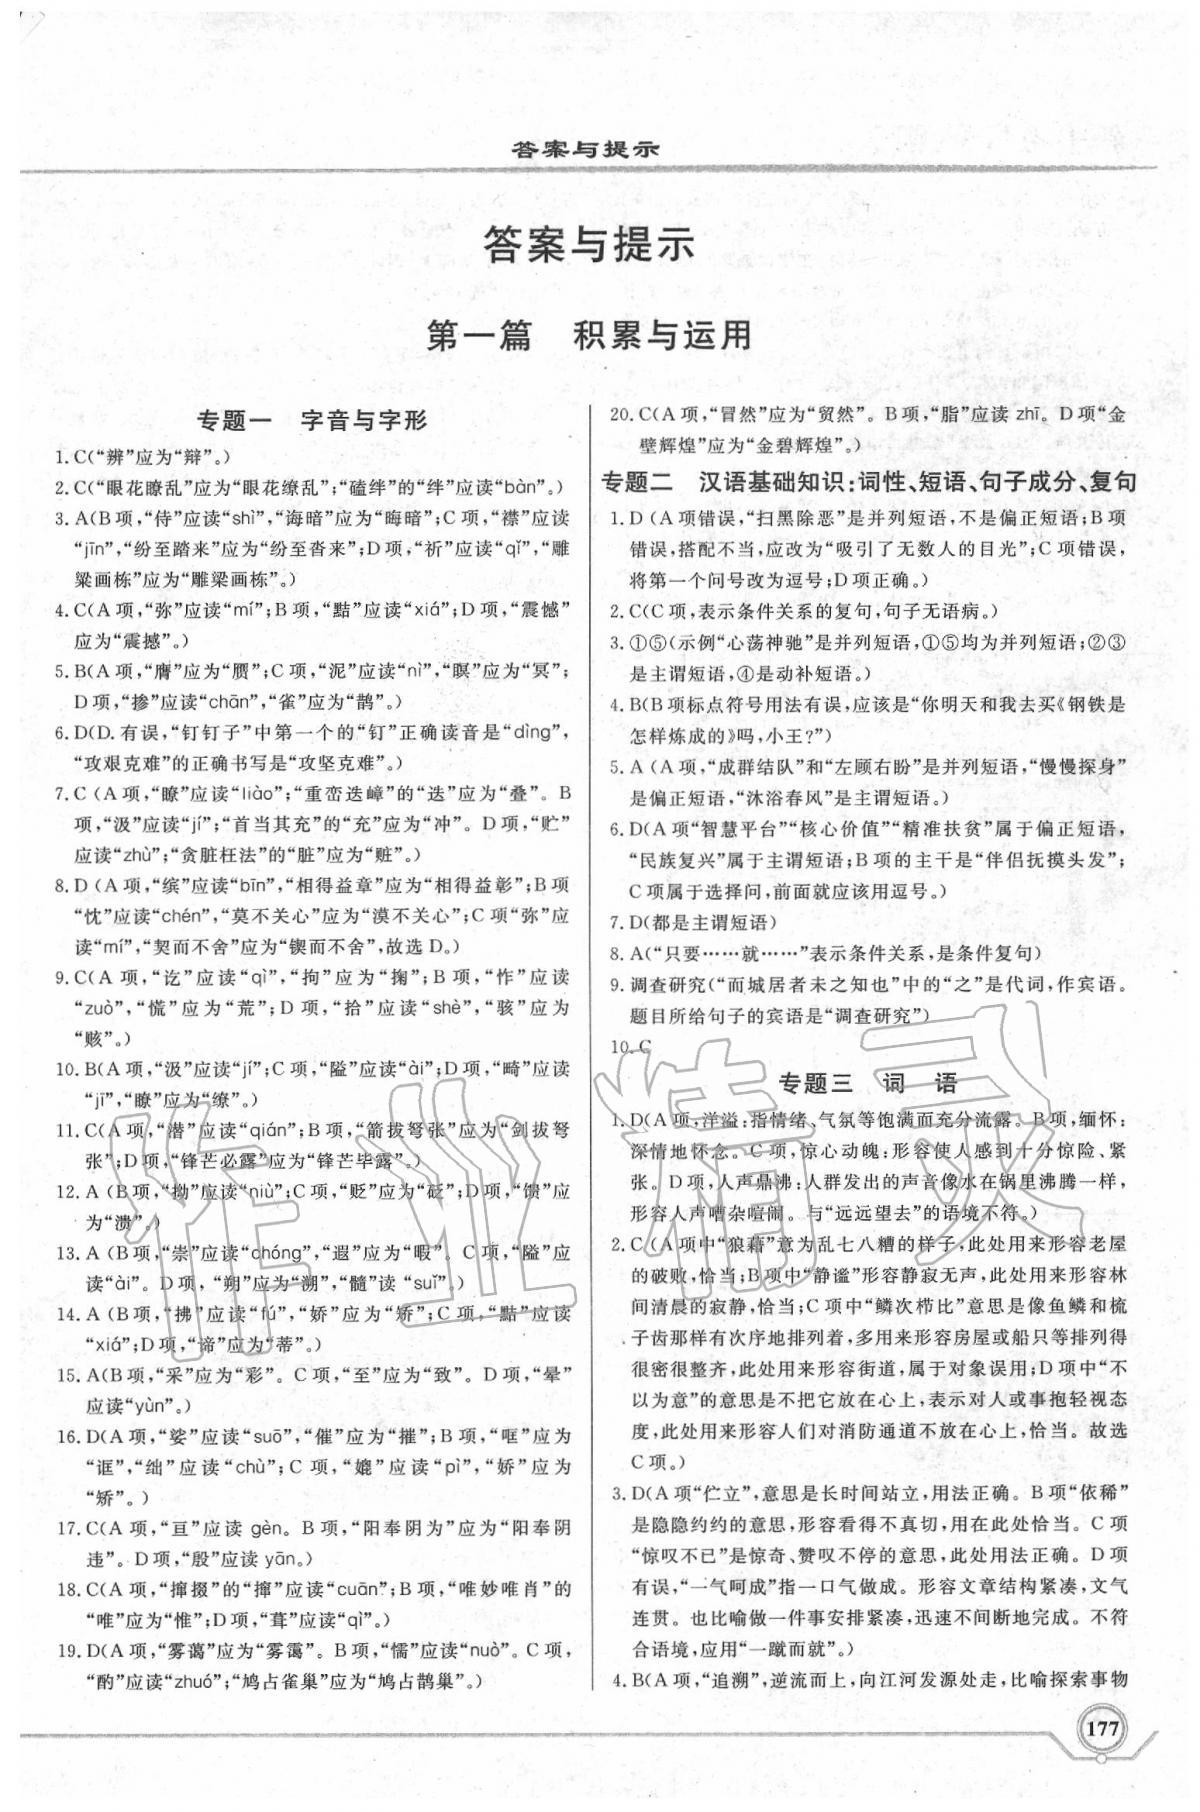 答案与提示
答案与提示
第一篇 积累与运用
专题一 字音与字形
1. C(“辨”应为“辩”。)
2. C(“眼花瞭乱”应为“眼花缭乱”;“磕绊”的“绊”应读“bàn”。)
3. A(B项,“侍”应读“shì”,“诲暗”应为“晦暗”;C项,“襟”应读
“jīn”,“纷至踏来”应为“纷至沓来”;D项,“祈”应读“qǐ”,“雕
粱画栋”应为“雕梁画栋”。)
4. C(A项,“弥”应读“mí”;B项,“黠”应读“xiá”;D项,“震憾”
应为“震撼”。)
5. B(A项,“膺”应为“赝”;C项,“泥”应读“nì”,“瞑”应为“冥”;
D项,“掺”应读“chān”,“雀”应为“鹊”。)
6. D(D.有误,“钉钉子”中第一个的“钉”正确读音是“dìng”,
“攻艰克难”的正确书写是“攻坚克难”。)
7. C(A项,“瞭”应读“liào”;“重峦迭嶂”的“迭”应为“叠”。B
项,“汲”应读“jí”;“首当其充”的“充”应为“冲”。D项,“贮”
应读“zhù”;“贪脏枉法”的“脏”应为“赃”。)
8. D(A项,“缤”应读“bīn”,“相得益章”应为“相得益彰”;B项
“忱”应读“chén”,“莫不关心”应为“漠不关心”;C项“弥”应
读“mí”,“契而不舍”应为“锲而不舍”,故选D。)
9. C(A项,“讫”应读“qì”,“拘”应为“掬”;B项,“怍”应读
“zuò”,“慌”应为“荒”;D项,“拾”应读“shè”,“骇”应为
“赅”。)
10. B(A项,“汲”应读“jí”;C项,“隘”应读“ài”;D项,“畸”应读
“jī”,“瞭”应为“缭”。)
11. C(A项,“潜”应读“qián”;B项,“箭拔弩张”应为“剑拔弩
张”;D项,“锋芒必露”应为“锋芒毕露”。)
12. A(B项,“拗”应读“niù”;C项,“贬”应为“砭”;D项,“馈”应
为“溃”。)
13. A(B项,“崇”应读“chóng”,“遐”应为“暇”。C项,“隘”应
读“ài”。D项,“朔”应为“溯”,“髓”应读“suǐ”。)
14. A(B项,“拂”应读“fú”,“娇”应为“矫”;C项,“黠”应读
“xiá”;D项,“谛”应为“蒂”。)
15. A(B项,“采”应为“彩”。C项,“至”应为“致”。D项,“晕”
应读“yùn”。)
16. D(A项,“娑”应读“suō”,“催”应为“摧”;B项,“哐”应为
“诓”,“绌”应读“chù”;C项,“媲”应读“pì”,“娇”应为
“矫”。)
17. C(A项,“亘”应读gèn。B项,“阳奉阴为”应为“阳奉阴
违”。D项,“殷”应读yān。)
18. C(A项,“撺掇”的“撺”应读“cuān”;B项,“唯妙唯肖”的
“唯”应为“惟”;D项,“葺”应读“qì”。)
19. D(A项,“雾蔼”应为“雾霭”。B项,“懦”应读“nuò”。C项,
“酌”应读“zhuó”;“鸠占雀巢”应为“鸠占鹊巢”。)
20. C(A项,“冒然”应为“贸然”。B项,“脂”应读zhī。D项“金
壁辉煌”应为“金碧辉煌”。)
专题二 汉语基础知识:词性、短语、句子成分、复句
1. D(A项错误,“扫黑除恶”是并列短语,不是偏正短语;B项
错误,搭配不当,应改为“吸引了无数人的目光”;C项错误,
将第一个问号改为逗号;D项正确。)
2. C(C项,表示条件关系的复句,句子无语病。)
3. ①⑤(示例“心荡神驰”是并列短语,①⑤均为并列短语;②③
是主谓短语,④是动补短语。)
4. B(B项标点符号用法有误,应该是“你明天和我去买《钢铁是
怎样炼成的》吗,小王?”)
5. A(A项,“成群结队”和“左顾右盼”是并列短语,“慢慢探身”
是偏正短语,“沐浴春风”是主谓短语。)
6. D(A项“智慧平台”“核心价值”“精准扶贫”属于偏正短语,
“民族复兴”属于主谓短语;B项的主干是“伴侣抚摸头发”;
C项属于选择问,前面就应该用逗号。)
7. D(都是主谓短语)
8. A(“只要……就……”表示条件关系,是条件复句)
9. 调查研究(“而城居者未之知也”中的“之”是代词,作宾语。
题目所给句子的宾语是“调查研究”)
10. C
专题三 词 语
1. D(A项,洋溢:指情绪、气氛等饱满而充分流露。B项,缅怀:
深情地怀念。C项,惊心动魄:形容使人感到十分惊险、紧
张。D项,人声鼎沸:人群发出的声音像水在锅里沸腾一样,
形容人声嘈杂喧闹。与“远远望去”的语境不符。)
2. C(A项中“狼藉”意为乱七八糟的样子,此处用来形容老屋
的破败,恰当;B项中“静谧”形容静寂无声,此处用来形容林
间清晨的寂静,恰当;C项中“鳞次栉比”意思是像鱼鳞和梳
子齿那样有次序地排列着,多用来形容房屋或船只等排列得
很密很整齐,此处用来形容街道,属于对象误用;D项中“不
以为意”的意思是不把它放在心上,表示对人或事抱轻视态
度,此处用来形容人们对消防通道不放在心上,恰当。故选
C项。)
3. D(A项“伫立”,意思是长时间站立,用法正确。B项“依稀”
是隐隐约约的意思,形容看得不真切,用在此处恰当。C项
“惊叹不已”是惊奇、赞叹不停的意思,此处用法正确。D项
有误,“一气呵成”指一口气做成。形容文章结构紧凑,文气
连贯。也比喻做一件事安排紧凑,迅速不间断地完成。不符
合语境,应用“一蹴而就”。)
4. B(A项,“追溯”,逆流而上,向江河发源处走,比喻探索事物
177
作业精灵